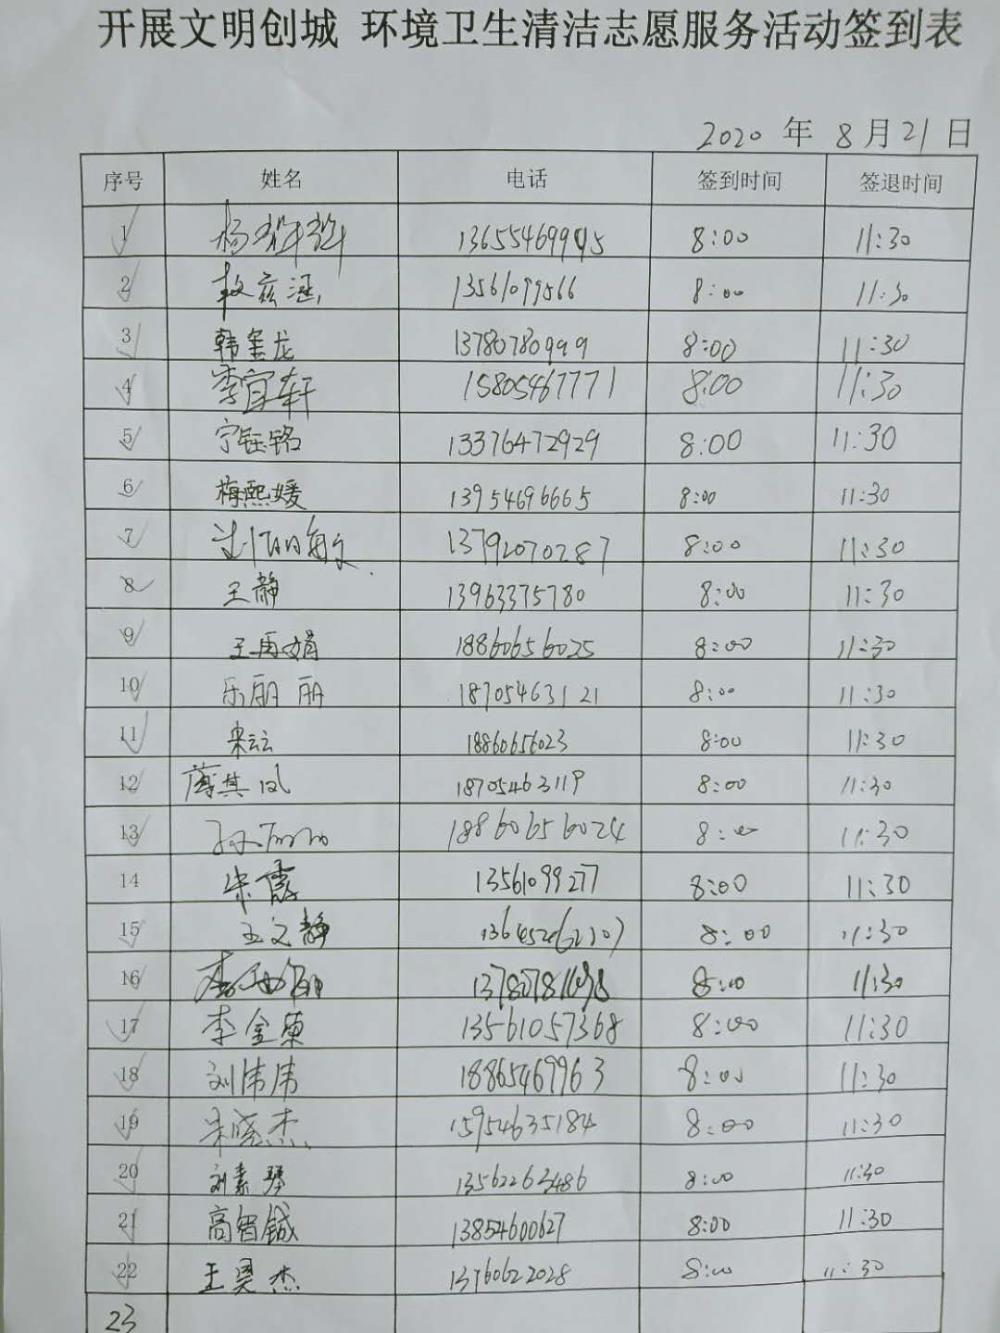 开展文明创城 环境卫生清洁志愿服务活动签到表
2020 年 8 月 21 日
序号 姓名 电话 签到时间 签退时间
1 杨 136554699 5 8:00 11:30
2 涵 13561099566 8:00 11:30
3 韩奎龙 13780780999 8:00 11:30
4 李宜轩 15805467771 8:00 11:30
5 宁钰铭 13376472929 8:00 11:30
6 梅熙媛 13954696665 8:00 11:30
7 13792070287 8:00 11:30
8 王静 13963375780 8:00 11:30
9 王再娟 18860656025 8:00 11:30
10 乐丽丽 18705463121 8:00 11:30
11 18860656023 8:00 11:30
12 其凤 18705463119 8:00 11:30
13 孙 18860656024 8:00 11:30
14 宋霞 13561099277 8:00 11:30
15 王文静 8:00 11:30
16 8:00 11:30
17 李金 13561057368 8:00 11:30
18 刘伟伟 18865469963 8:00 11:30
19 宋晓杰 15954635184 8:00 11:30
20 刘素琴 13562263486 8:00 11:30
21 高智铖 13854600627 8:00 11:30
22 王昊杰 13760622028 8:00 11:30
23